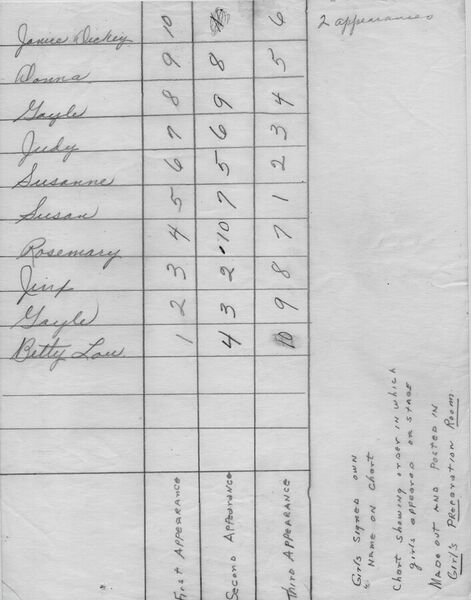 Janice Dickey 10 6 2 appearances
Donna 9 8 5
Gayle 8 9 4
Judy 7 6 3
Susanne 6 5 2
Susan 5 7 1
Rosemary 4 10 7
Jinx 3 2 8
Gayle 2 3 9
Betty Lou 1 4 10
First Appearance
Second Appearance
Third Appearance
Girls signed own
name on chart
Chart showing order in which
girls appeared on stage
Made out and posted in
Girl's Preparation Room